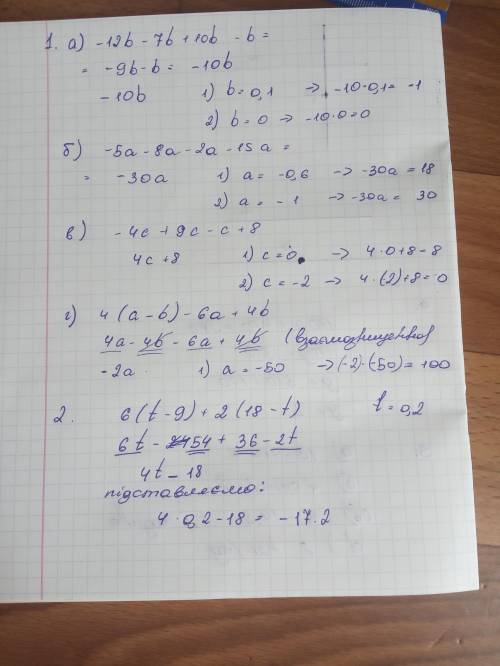 1. а) -12b - 7b + 10b - b =
= -9b - b = -10b
-10b 1) b = 0,1 → -10·0,1 = -1
2) b = 0 → -10·0 = 0
б) -5a - 8a - 2a - 15a =
= -30a 1) a = -0,6 → -30a = 18
2) a = -1 → -30a = 30
в) -4c + 9c - c + 8
4c + 8 1) c = 0 → 4·0+8 - 8
2) c = -2 → 4·(2)+8 = 0
г) 4(a - b) - 6a + 4b
4a - 4b - 6a + 4b (взаємознищенно)
-2a 1) a = -50 → (-2)·(-50) = 100
2. 6(t - 9) + 2(18 - t) t = 0,2
6t - 54 + 36 - 2t
4t - 18
підставляємо:
4·0,2 - 18 = -17.2